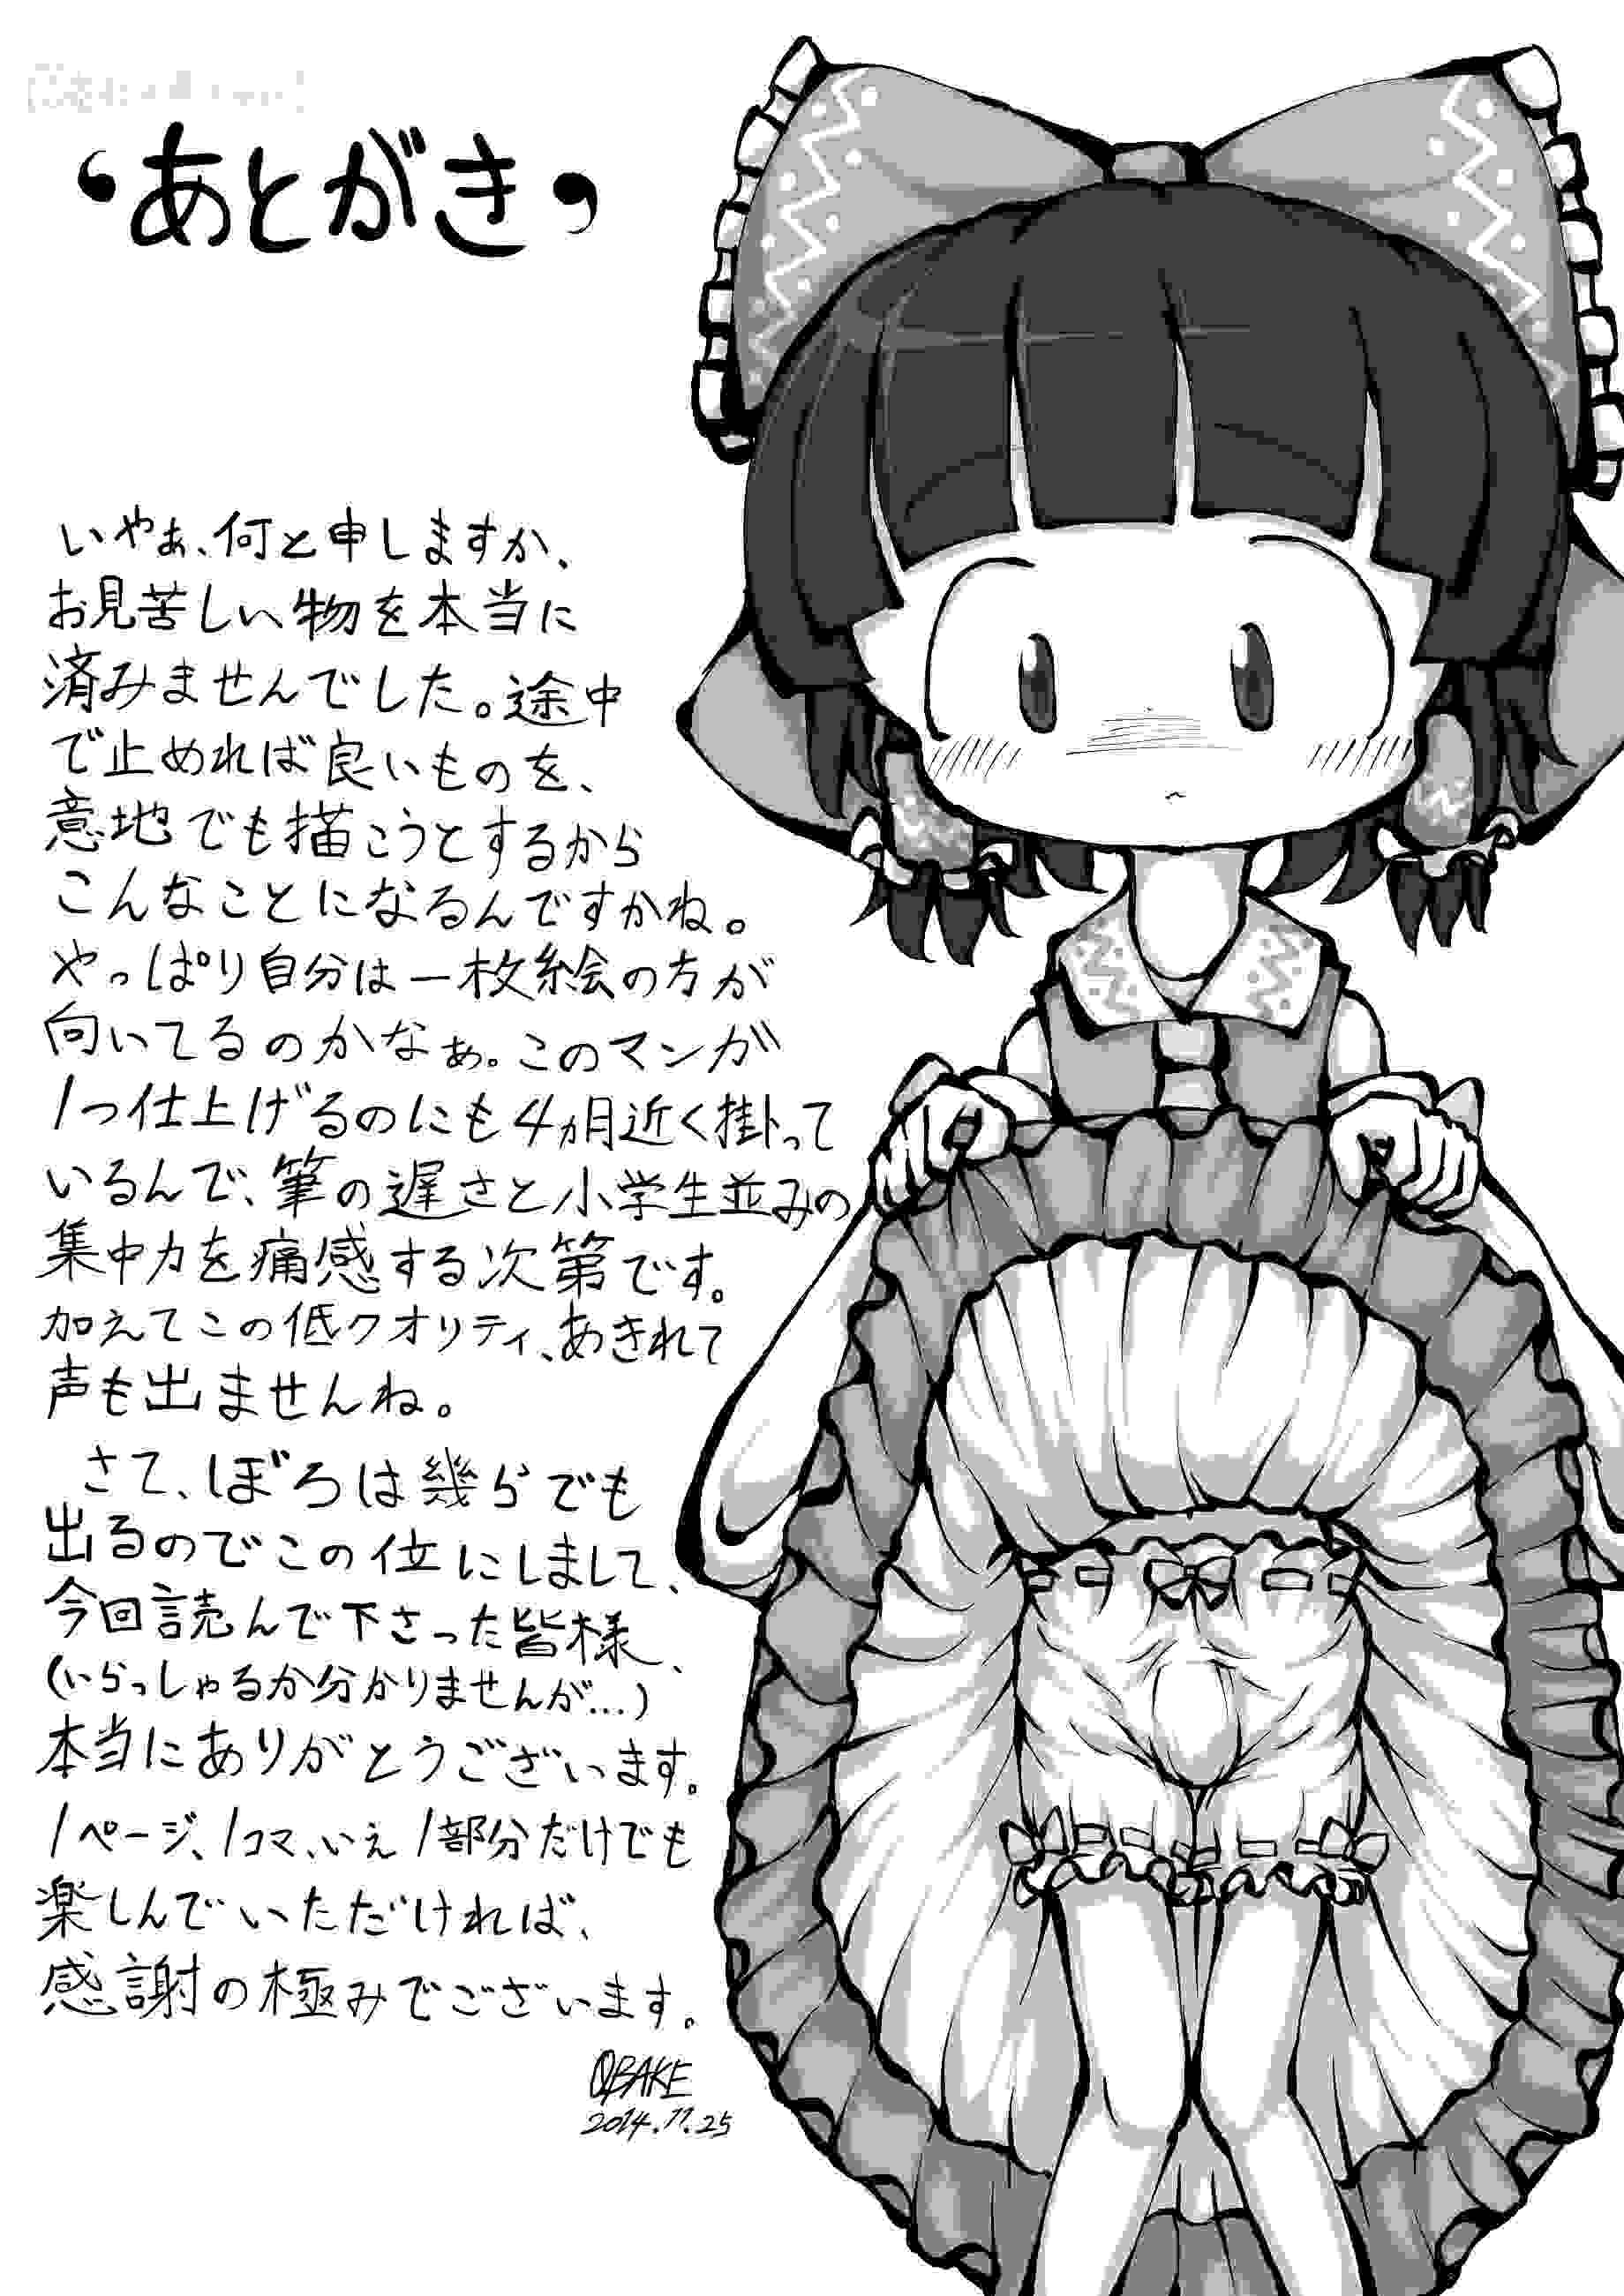 ‘あとがき’
いやぁ、何と申しますか、
お見苦しい物を本当に
済みませんでした。途中
で止めれば良いものを、
意地でも描こうとするから
こんなことになるんですかね。
やっぱり自分は一枚絵の方が
向いてるのかなぁ。このマンガ
1つ仕上げるのにも4ヵ月近く掛って
いるんで、筆の遅さと小学生並みの
集中力を痛感する次第です。
加えてこの低クオリティ、あきれて
声も出ませんね。
さて、ぼろは幾らでも
出るのでこの位にしまして、
今回読んで下さった皆様、
(いらっしゃるか分かりませんが…)
本当にありがとうございます。
1ページ、1コマ、いえ1部分だけでも
楽しんでいただければ、
感謝の極みでございます。
OBAKE
2014.11.25